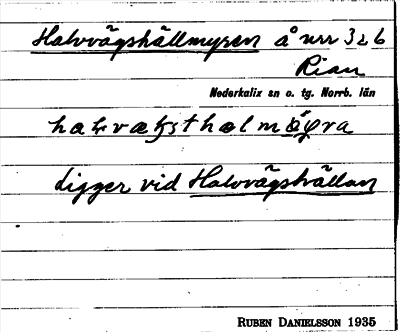 Halvvägshällmyren å nrr 3 & 6
Rian
Nederkalix sn o. tg. Norrb. län
Ligger vid Halvvägshällan
RUBEN DANIELSSON 1935